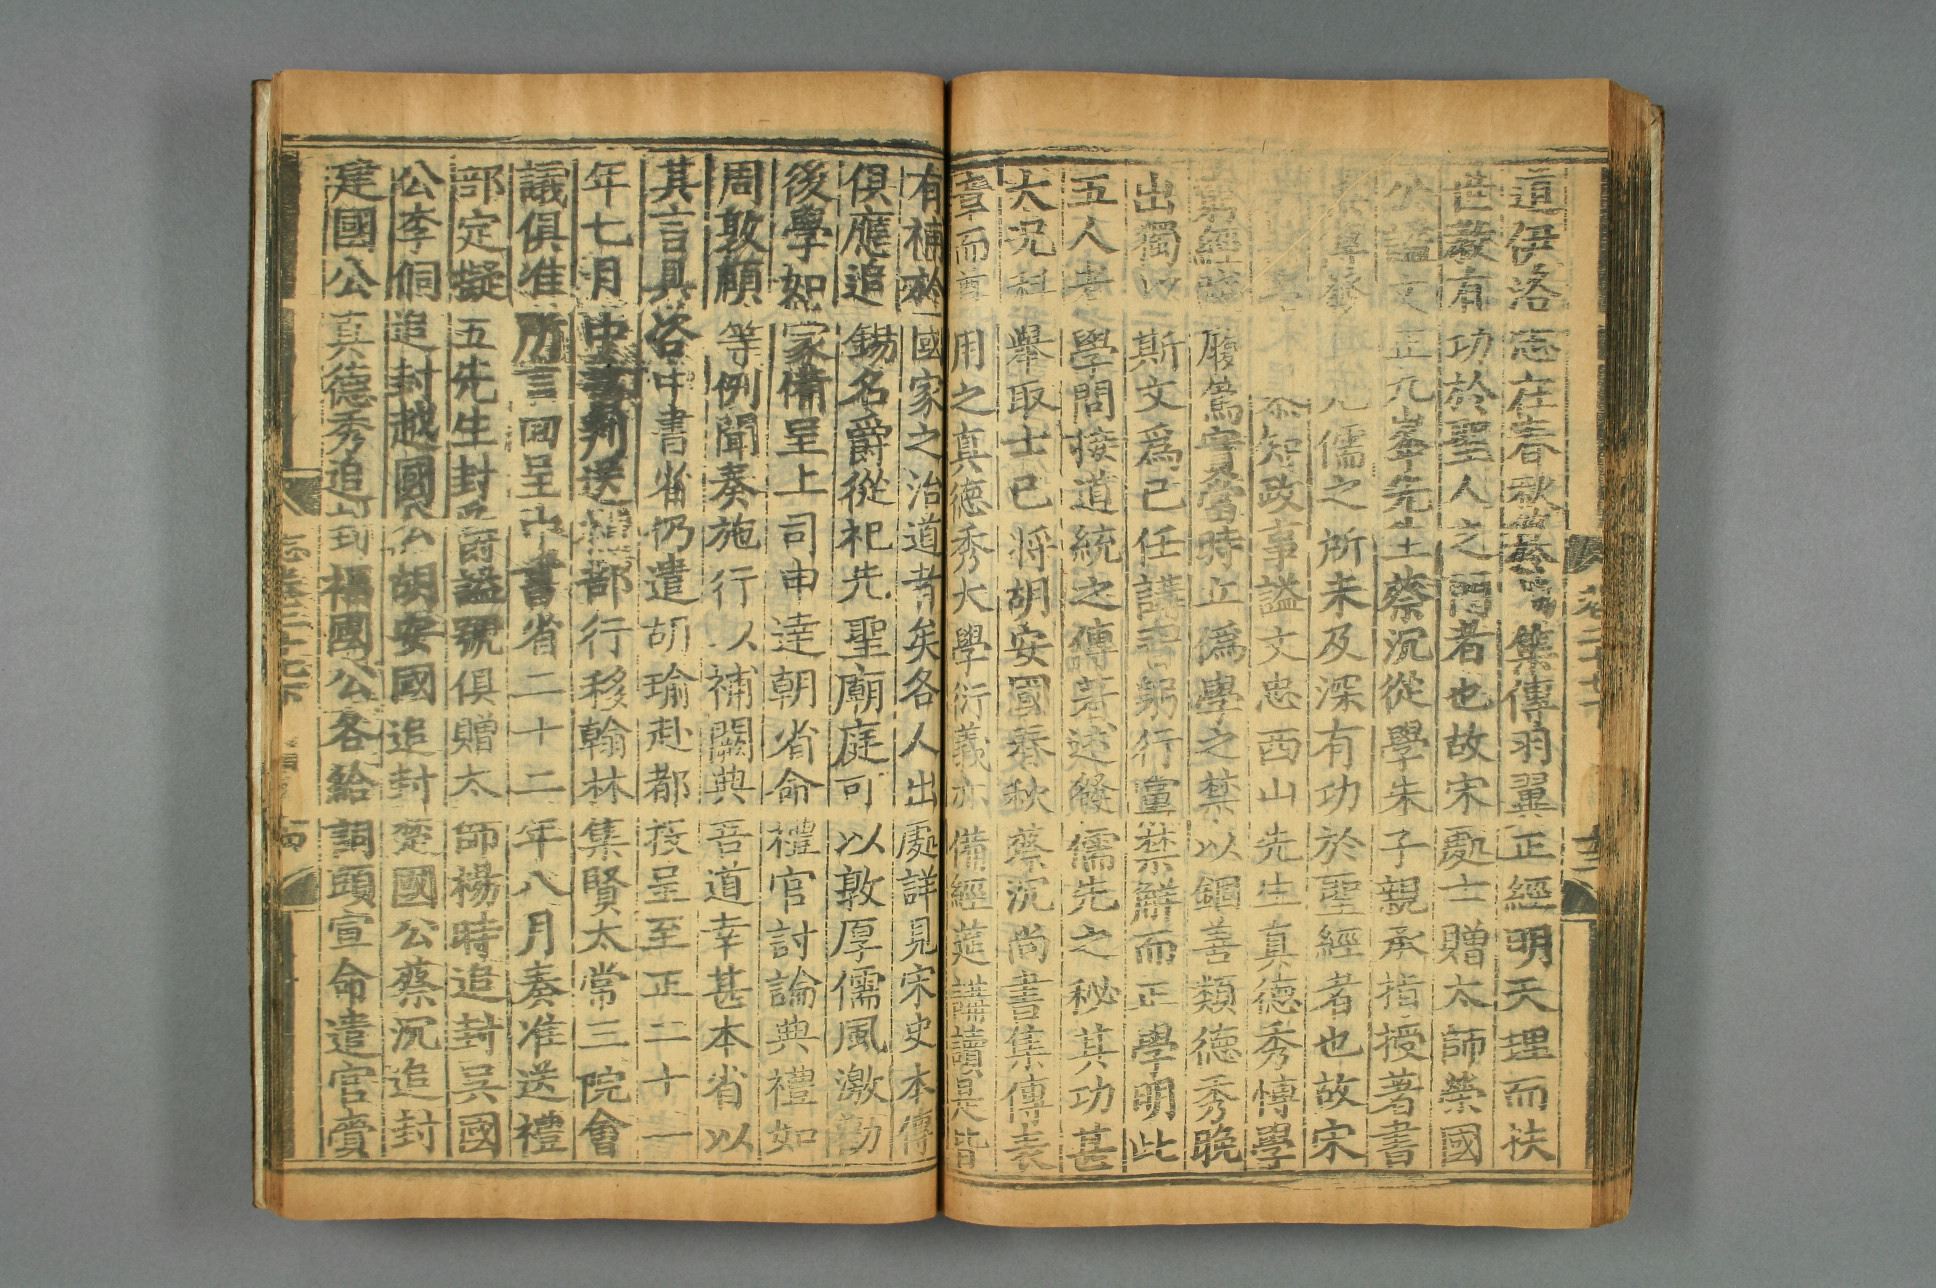 道伊洛志在春秋纂集傳羽翼正經明天理而扶
世教有功於聖人之門者也故宋處士贈太師榮國
公謚文正九峯先生蔡沉從學朱子親承指授著書
先儒之所未及深有功於聖經者也故宋
參知政事謚文忠西山先生真德秀博學
窮經踐履篤實當時立偽學之禁以錮善類德秀晚
出獨以斯文爲己任講習躬行黨禁解而正學明此
五人者學問接道統之傳著述發儒先之秘其功甚
大况科舉取士已將胡安國春秋蔡沉尚書集傳表
章而尊用之真德秀大學衍義亦備經筵講讀是皆
有補於國家之治道者矣各人出處詳見宋史本傳
俱應追錫名爵從祀先聖廟庭可以敦厚儒風激勸
後學如家備呈上司申達朝省命禮官討論典禮如
周敦頤等例聞奏施行以補闕典吾道幸甚本省以
其言具咨中書省仍遣胡瑜赴都投呈至正二十一
年七月中書判送禮部行移翰林集賢太常三院會
議俱准所言回呈中書省二十二年八月奏准送禮
部定擬五先生封爵謚號俱贈太師楊時追封吳國
公李侗追封越國公胡安國追封楚國公蔡沉追封
建國公真德秀追封福國公各給詞頭宣命遣官賫
志卷二十七下